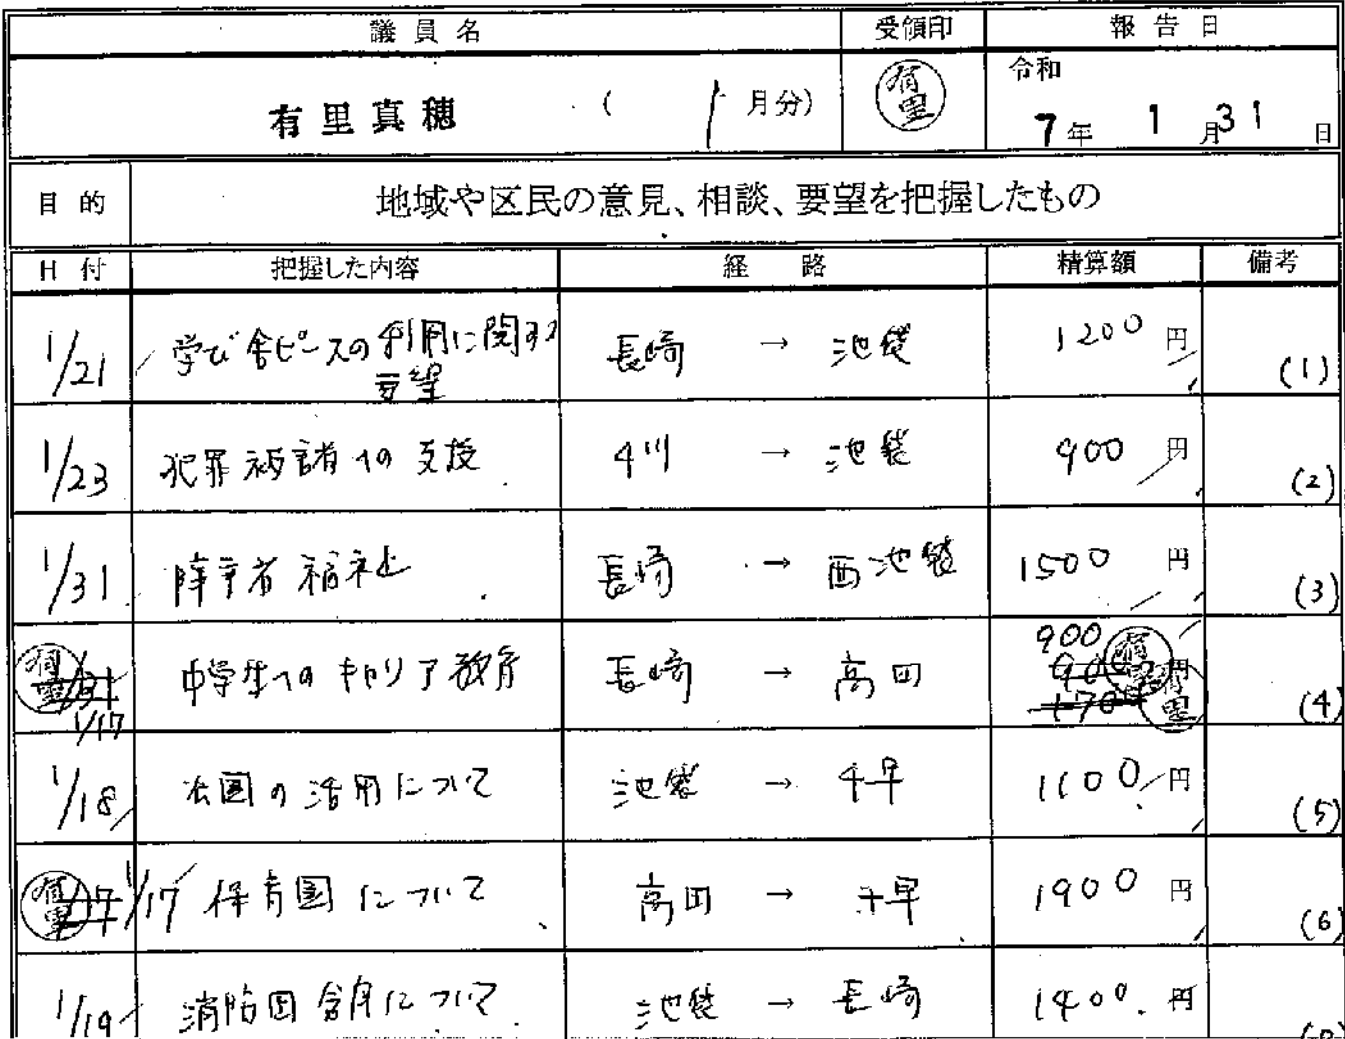 議員名 受領印 報告日
有里真穂 ( 1 月分) 有里 令和 7年 1月31日
目的 地域や区民の意見、相談、要望を把握したもの
日付 把握した内容 経路 精算額 備考
1/21 学び舎ピースの利用に関する 長崎 → 池袋 1200円 (1)
要望
1/23 犯罪被害者への支援 千川 → 池袋 900円 (2)
1/31 障害者福祉 長崎 → 西池袋 1500円 (3)
有里 1/31 中学生へのキャリア教育 長崎 → 高田 900 有里 円 (4)
1/17 1700 有里
1/18 公園の活用について 池袋 → 千早 1100円 (5)
有里 1/17 保育園について 高田 → 千早 1900円 (6)
1/19 消防団 について 池袋 → 長崎 1400円